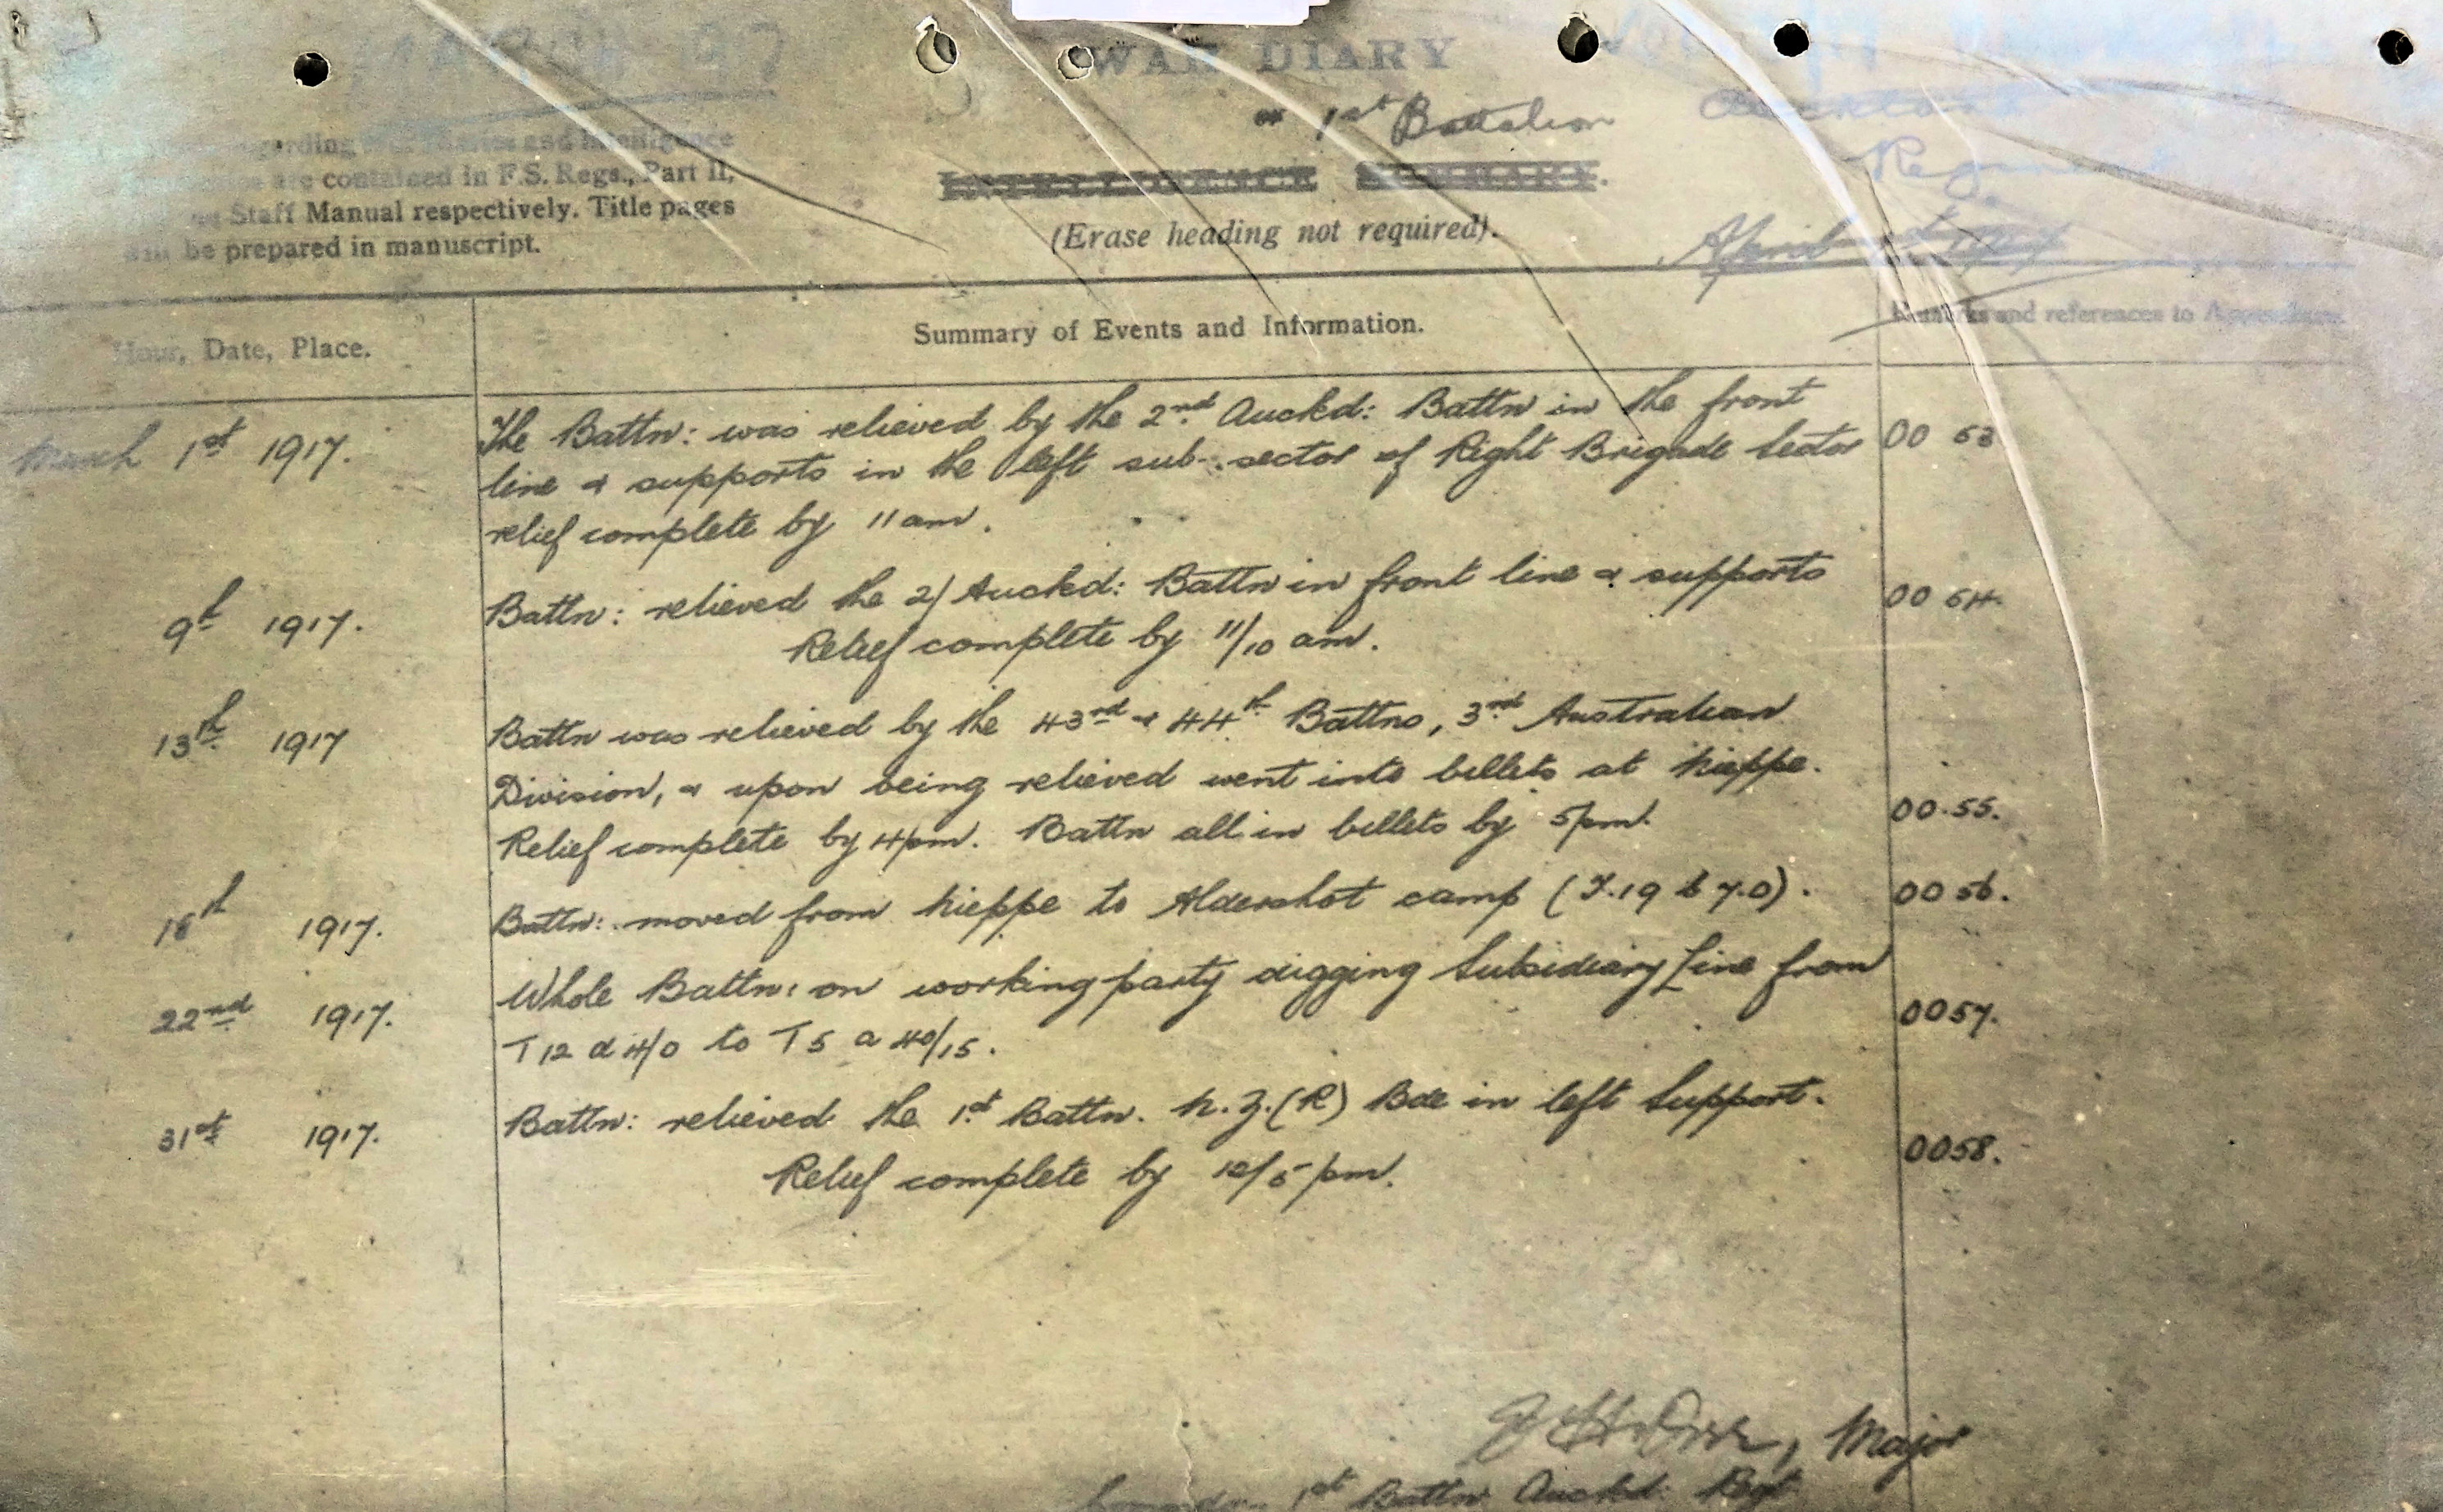 MARCH 1917
WAR DIARY
or 1st Battalion
Auckland
Regiment
regarding War Diaries and Intelligence
are contained in F.S. Regs., Part II,
Staff Manual respectively. Title pages
will be prepared in manuscript.
INTELLIGENCE SUMMARY.
(Erase heading not required).
April
Hour, Date, Place.
Summary of Events and Information.
Remarks and references to Appendices.
March 1st 1917.
The Battn: was relieved by the 2nd Auckd: Battn in the front
line & supports in the left sub-sector of Right Brigade Sector
relief complete by 11am.
00 53
9th 1917.
Battn: relieved the 2/Auckd: Battn in front line & supports
Relief complete by 11/10 am.
00 54.
13th 1917
Battn was relieved by the 43rd & 44th Battns, 3rd Australian
Division, & upon being relieved went into billets at Nieppe.
Relief complete by 4pm. Battn all in billets by 5pm.
00.55.
16th 1917.
Battn: moved from Nieppe to Aldershot camp (T.19 b 7.0).
00 56.
22nd 1917.
Whole Battn: on working party digging Subsidiary Line from
T12 d 4/0 to T5 a 40/15.
0057.
31st 1917.
Battn: relieved the 1st Battn. N.Z.(R) Bde in left Support.
Relief complete by 12/5 pm.
0058.
Major
1st Battn Auckd. Regt